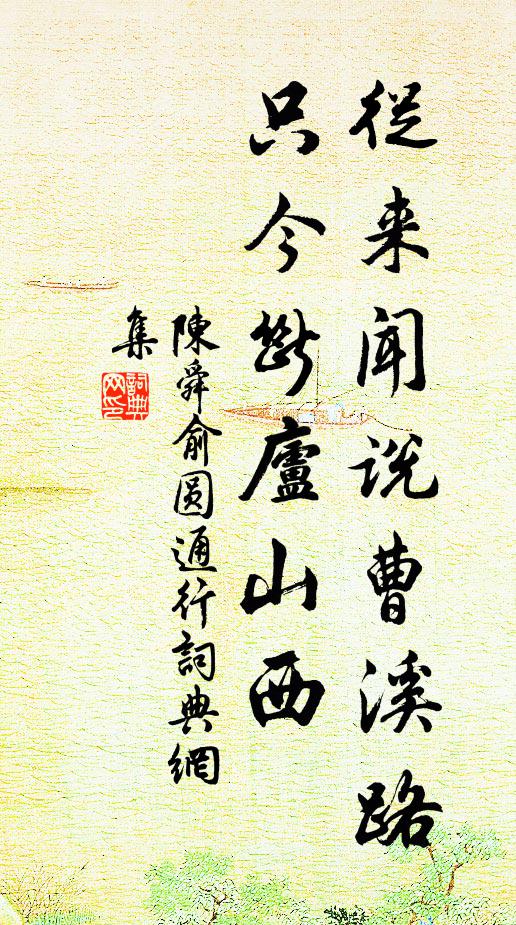 從来闻説曹溪路
只今斷廬山西
陳舜俞圆通行詞典網
集
詞典
网印